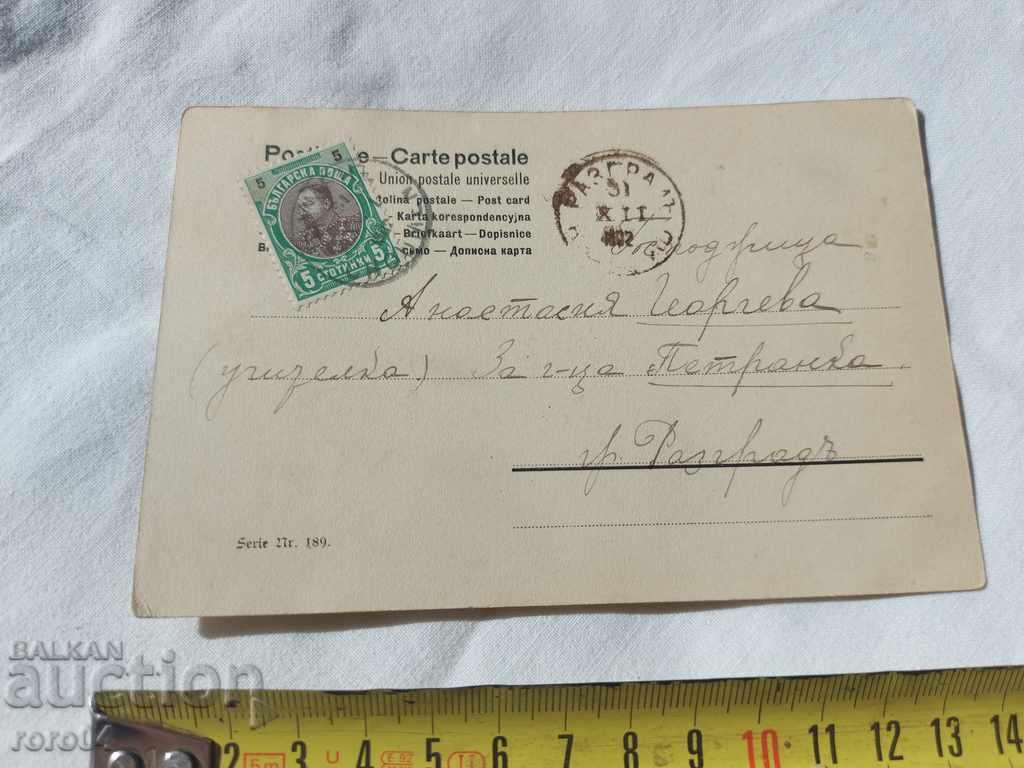 Carte postale
Union postale universelle
postale — Post card
Karta korespondencyjna
Briefkaart — Dopisnice
Дописна карта
5 5
БЪЛГАРСКА ПОЩА
5 СТОТИНКИ 5
РАЗГРАДЪ
XII
Анастасия Георгева
За г-ца Петранка.
гр. Разградъ
Serie Nr. 189.
BALKAN
auction
2 3 4 5 6 7 8 9 10 11 12 13 14
5m